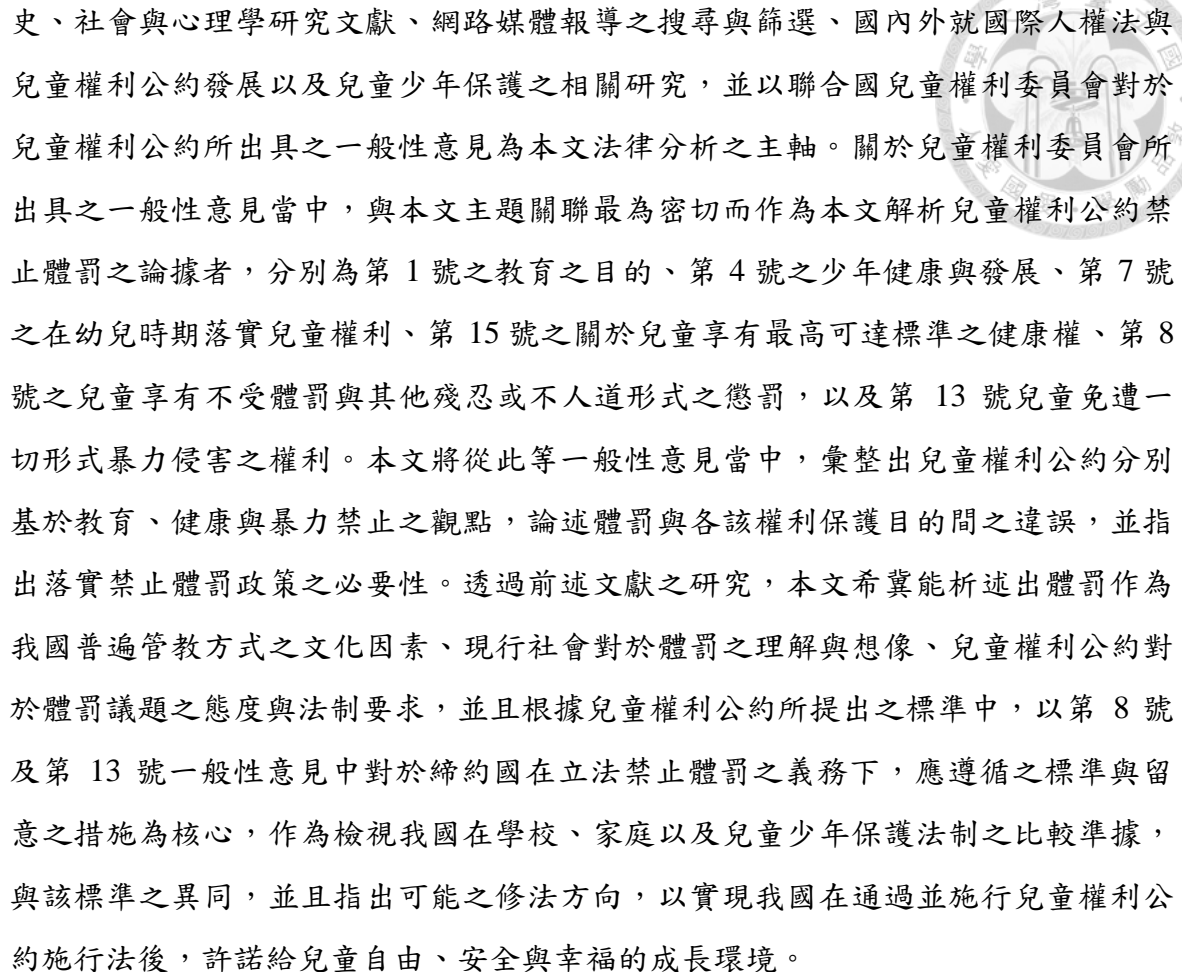 史、社會與心理學研究文獻、網路媒體報導之搜尋與篩選、國內外就國際人權法與
兒童權利公約發展以及兒童少年保護之相關研究，並以聯合國兒童權利委員會對於
兒童權利公約所出具之一般性意見為本文法律分析之主軸。關於兒童權利委員會所
出具之一般性意見當中，與本文主題關聯最為密切而作為本文解析兒童權利公約禁
止體罰之論據者，分別為第 1 號之教育之目的、第 4 號之少年健康與發展、第 7 號
之在幼兒時期落實兒童權利、第 15 號之關於兒童享有最高可達標準之健康權、第 8
號之兒童享有不受體罰與其他殘忍或不人道形式之懲罰，以及第 13 號兒童免遭一
切形式暴力侵害之權利。本文將從此等一般性意見當中，彙整出兒童權利公約分別
基於教育、健康與暴力禁止之觀點，論述體罰與各該權利保護目的間之違誤，並指
出落實禁止體罰政策之必要性。透過前述文獻之研究，本文希冀能析述出體罰作為
我國普遍管教方式之文化因素、現行社會對於體罰之理解與想像、兒童權利公約對
於體罰議題之態度與法制要求，並且根據兒童權利公約所提出之標準中，以第 8 號
及第 13 號一般性意見中對於締約國在立法禁止體罰之義務下，應遵循之標準與留
意之措施為核心，作為檢視我國在學校、家庭以及兒童少年保護法制之比較準據，
與該標準之異同，並且指出可能之修法方向，以實現我國在通過並施行兒童權利公
約施行法後，許諾給兒童自由、安全與幸福的成長環境。